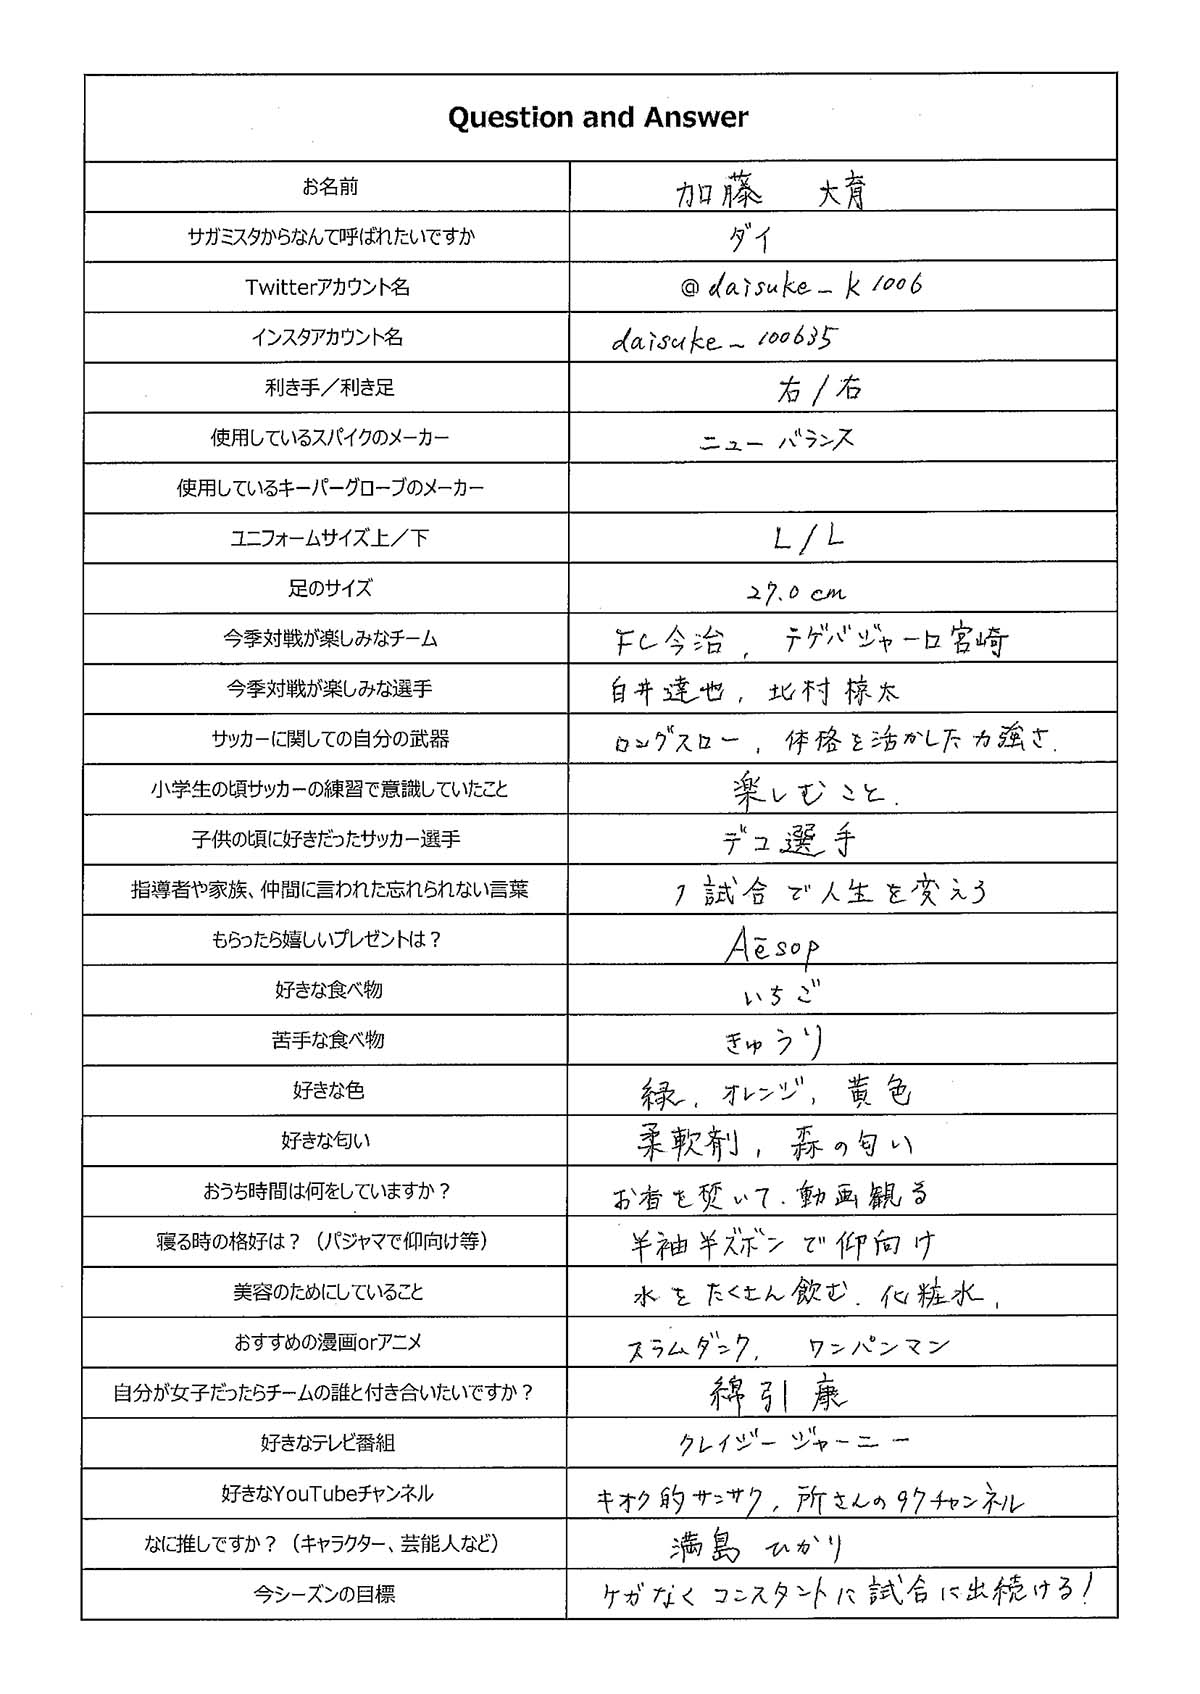 Question and Answer
お名前 加藤 大育
サガミスタからなんて呼ばれたいですか ダイ
Twitterアカウント名 @daisuke_k1006
インスタアカウント名 daisuke_100635
利き手／利き足 右/右
使用しているスパイクのメーカー ニューバランス
使用しているキーパーグローブのメーカー
ユニフォームサイズ上／下 L/L
足のサイズ 27.0cm
今季対戦が楽しみなチーム FC今治, テゲバジャーロ宮崎
今季対戦が楽しみな選手 白井達也, 北村椋太
サッカーに関しての自分の武器 ロングスロー, 体格を活かした力強さ.
小学生の頃サッカーの練習で意識していたこと 楽しむこと.
子供の頃に好きだったサッカー選手 デコ選手
指導者や家族、仲間に言われた忘れられない言葉 1試合で人生を変えろ
もらったら嬉しいプレゼントは？ Aēsop
好きな食べ物 いちご
苦手な食べ物 きゅうり
好きな色 緑, オレンジ, 黄色
好きな匂い 柔軟剤, 森の匂い
おうち時間は何をしていますか？ お香を焚いて.動画観る
寝る時の格好は？（パジャマで仰向け等） 半袖半ズボンで仰向け
美容のためにしていること 水をたくさん飲む. 化粧水,
おすすめの漫画orアニメ スラムダンク, ワンパンマン
自分が女子だったらチームの誰と付き合いたいですか？ 綿引康
好きなテレビ番組 クレイジージャーニー
好きなYouTubeチャンネル キオク的サンサク, 所さんの97チャンネル
なに推しですか？（キャラクター、芸能人など） 満島ひかり
今シーズンの目標 ケガなくコンスタントに試合に出続ける!